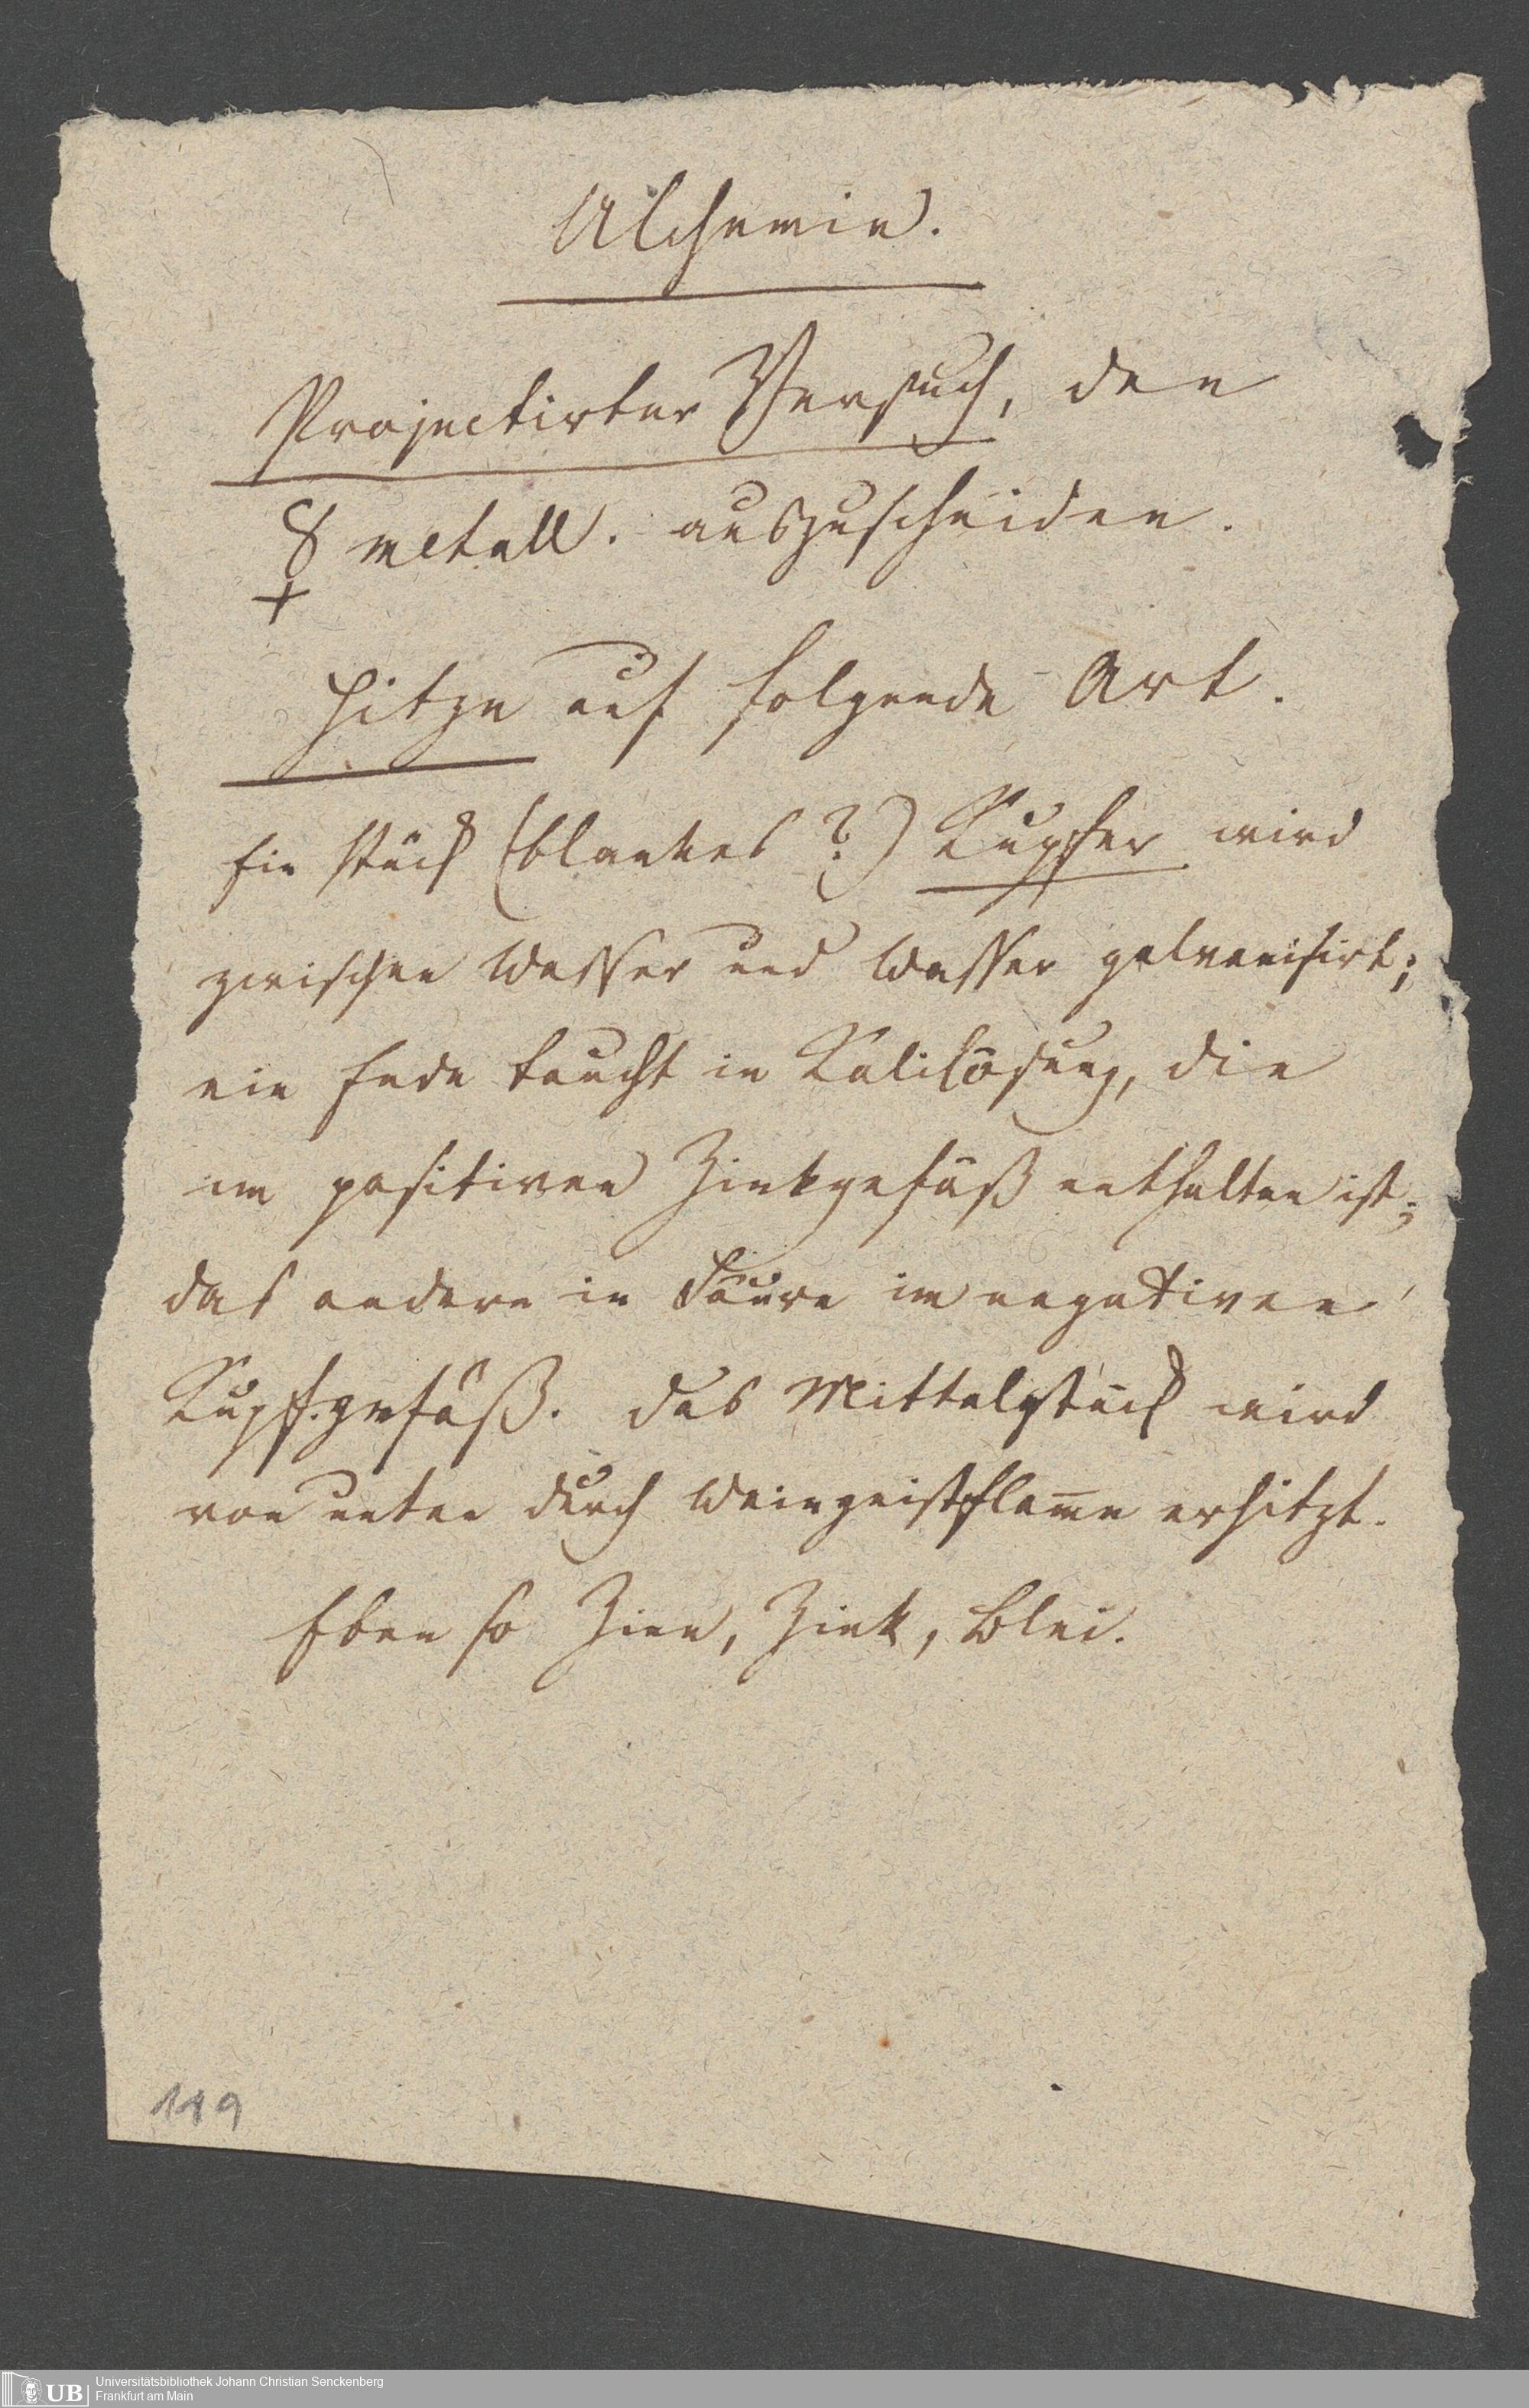 Alchemie.
Projectirter Versuch, den
☿ metall. auszuscheiden.
Hitze auf folgende Art.
Ein Stück (blankes ?) Kupfer wird
zwischen Wasser und Wasser galvanisirt;
ein Ende taucht in Kalilösung, die
im positiven Zinkgefäß enthalten ist;
das andere in Säure im negativen
Kupf.gefäß. Das Mittelstück wird
von unten durch Weingeistflam̅e erhitzt.
Eben so Zinn, Zink, Blei.
119
UB
Universitätsbibliothek Johann Christian Senckenberg
Frankfurt am Main